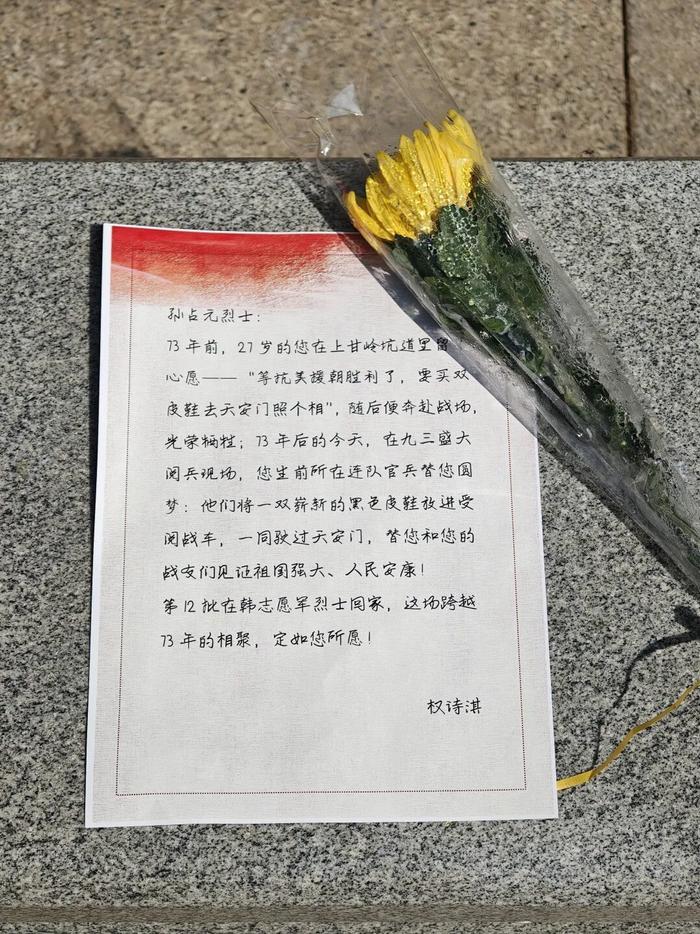 孙占元烈士：
73年前，27岁的您在上甘岭坑道里留
心愿——“等抗美援朝胜利了，要买双
皮鞋去天安门照个相”，随后便奔赴战场，
光荣牺牲；73年后的今天，在九三盛大
阅兵现场，您生前所在连队官兵替您圆
梦：他们将一双崭新的黑色皮鞋放进受
阅战车，一同驶过天安门，替您和您的
战友们见证祖国强大、人民安康！
第12批在韩志愿军烈士回家，这场跨越
73年的相聚，定如您所愿！
权诗淇